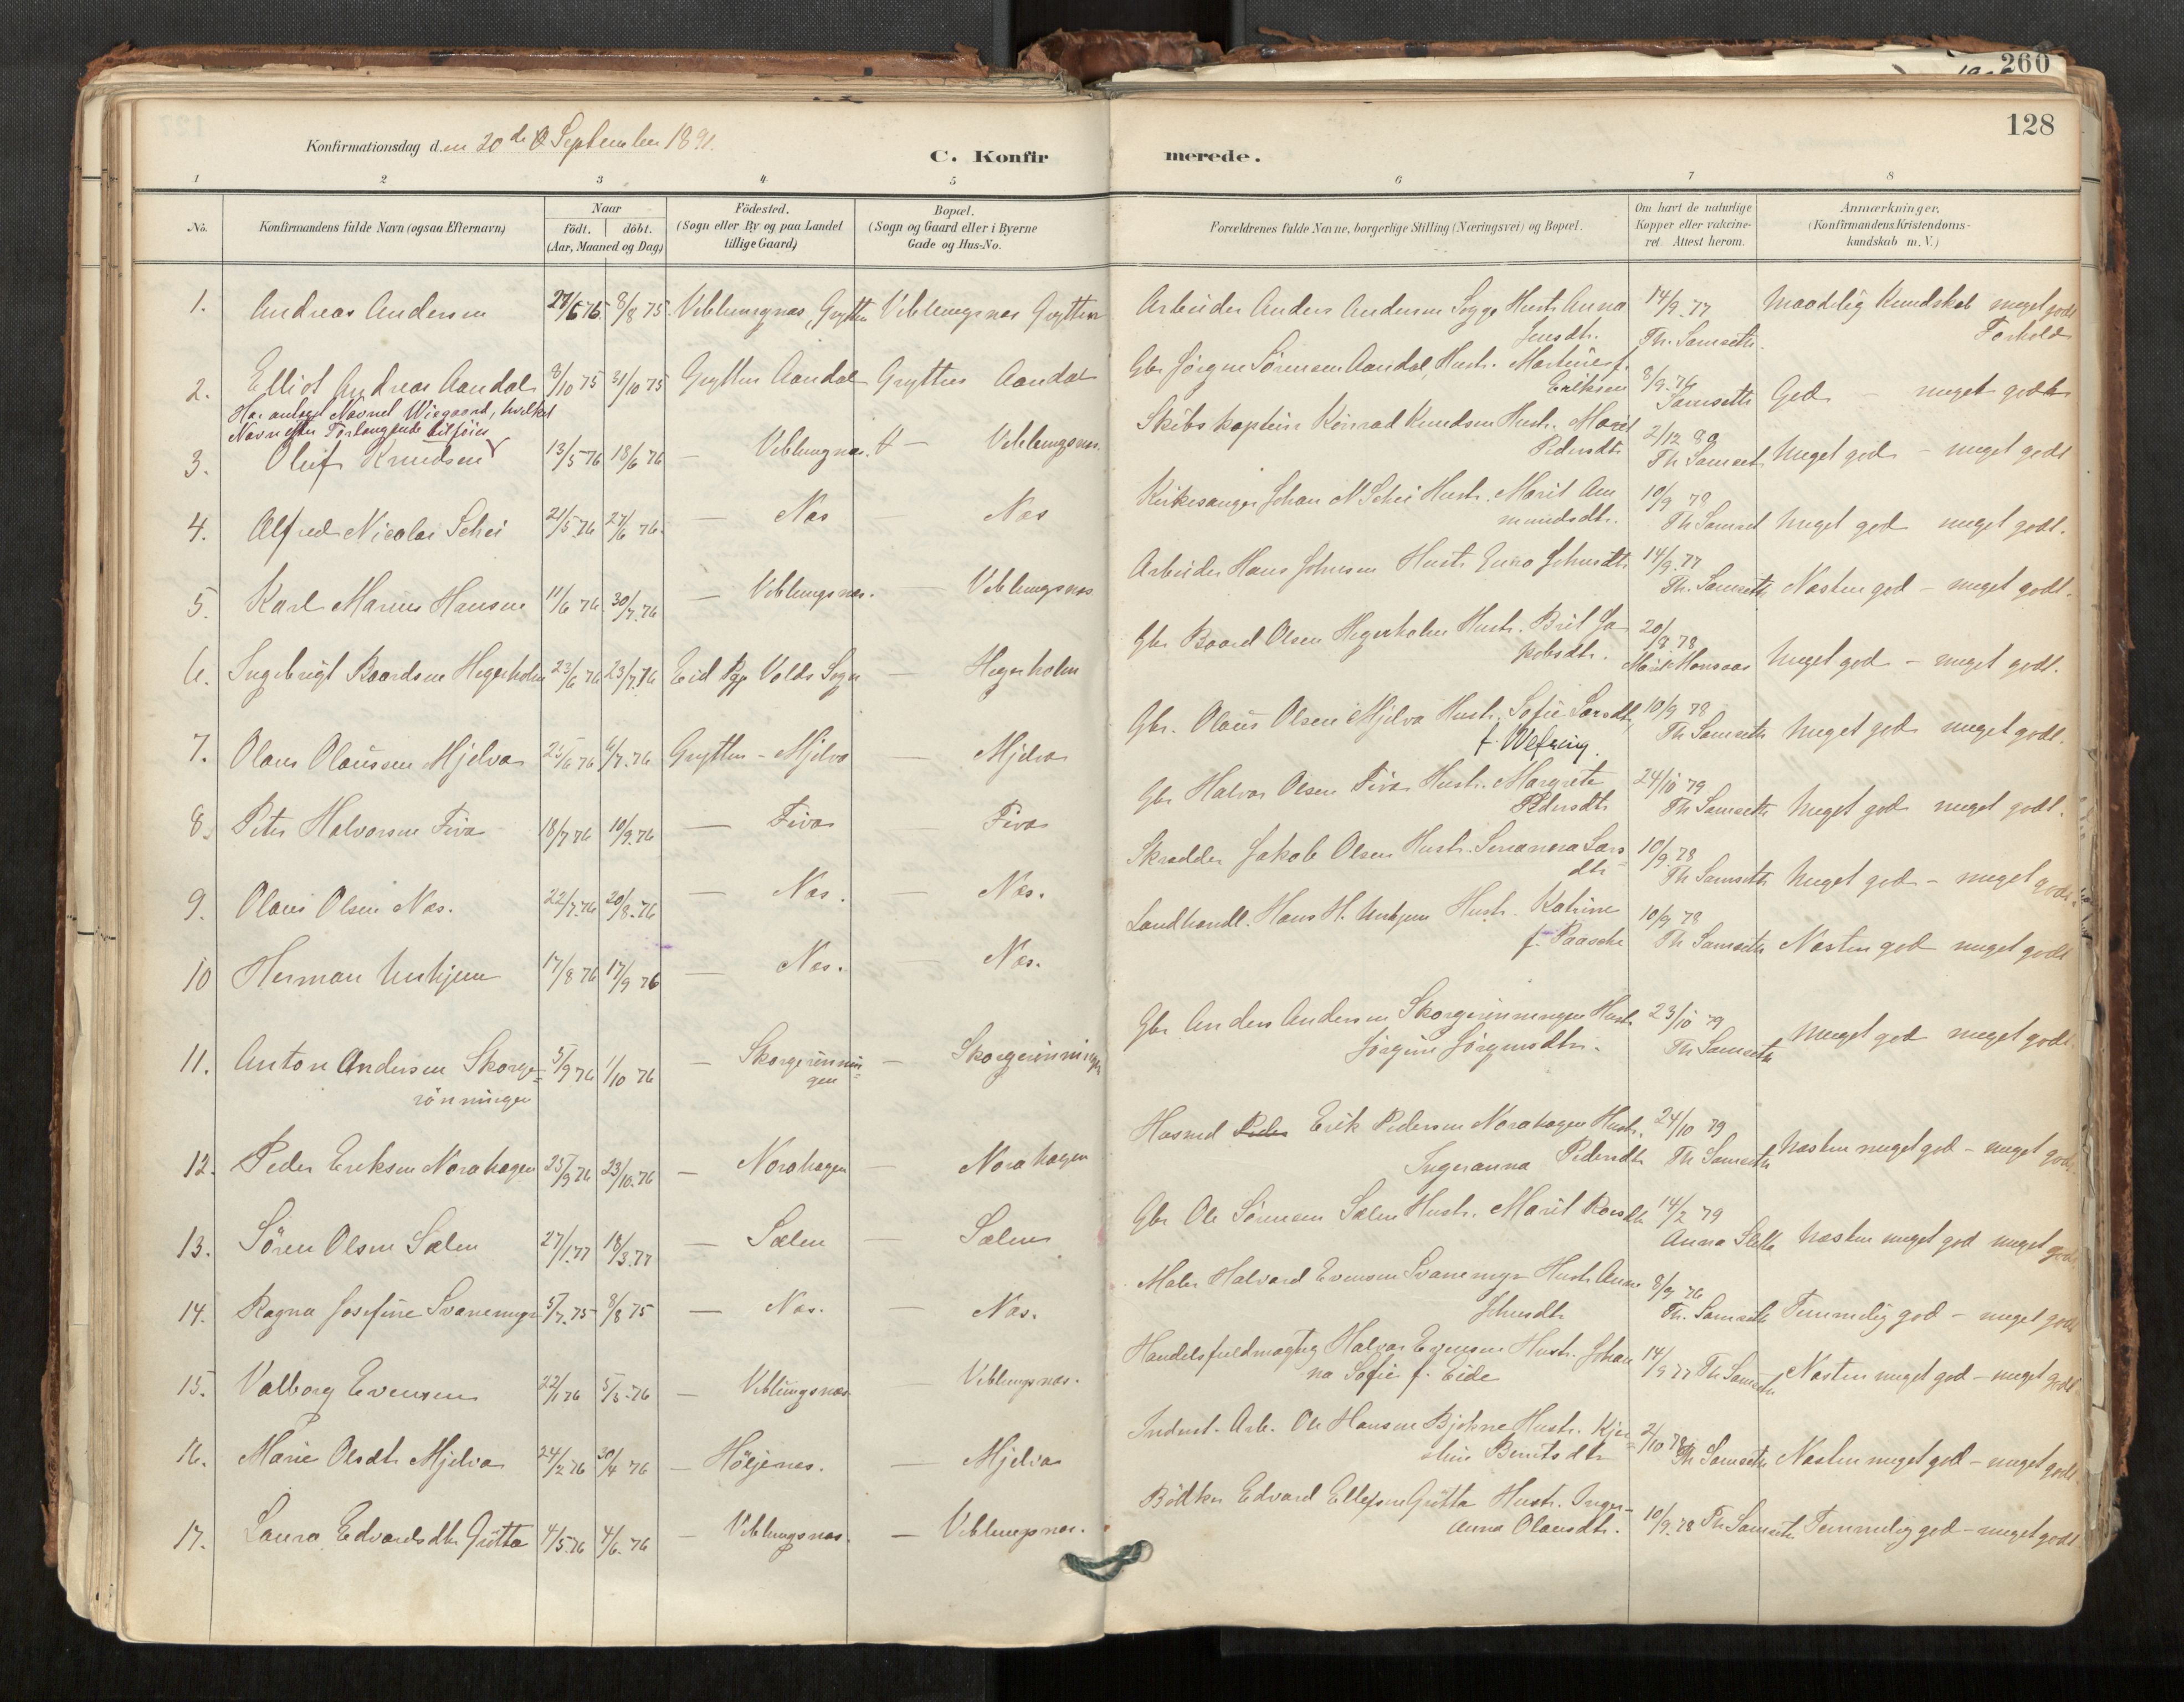 260
128
Konfirmationsdag den 20de September 1891.
C. Konfirmerede.
1 2 3 4 5 6 7 8
No. Konfirmandens fulde Navn (ogsaa Efternavn) Naar födt. döbt. (Aar, Maaned og Dag) Födested. (Sogn eller By og paa Landet tillige Gaard) Bopæl. (Sogn og Gaard eller i Byerne Gade og Hus-No. Forældrenes fulde Navne, borgerlige Stilling (Næringsvei) og Bopæl. Om havt de naturlige Kopper eller vakcineret. Attest herom. Anmærkninger. (Konfirmandens Kristendomskundskab m. V.)
1. Andreas Andersen 27/6 75 8/8 75 Veblungnæs, Grytten Veblungsnæs Grytten Arbeider Anders Andersen Sogge Hustr. Anna 14/9 77 Maadelig Kundskab meget godt
Jensdtr. Th. Samseth. Forhold
2. Elliot Andreas Aandal 8/10 75 31/10 75 Grytten Aandal Grytten Aandal Gbr Jörgen Sörensen Aandal, Hustr. Martine f.
Eriksen 8/9 76 Samseth God – meget godt
Har antaget Navnet Wiegaard, hvilket
Navn efter Forlangende tilföies
3. Oluf Knudsen 13/5 76 18/6 76 – Veblungnæs. – Veblungsnæs. Skibskaptein Konrad Knudsen Hustr. Marit 2/12 80
Pedersdtr. Th Samset Meget god – meget godt
4. Alfred Nicolai Schei 21/5 76 27/6 76. – Næs Næs Kirkesanger Johan N Schei Hustr. Marit Am 10/9 78
mundsdtr. Th Samset Meget god meget godt.
5. Karl Marius Hansen 11/6 76 30/7. 76 – Veblungsnæs. – Veblungsnæs Arbeider Hans Johnsen Hustr Johnsdtr 14/9. 77
Th. Samseth Næsten god – meget godt.
6. Ingebrigt Baardsen Hegerholm 23/6 76 23/7. 76 Eid Pgj Volds Sogn – Hegerholm Gbr Baard Olsen Hegerholm Hustr. Brit Ja 20/9. 78
kobsdtr. Meget god – meget godt.
7. Olaus Olaussen Mjelva 25/6 76 6/7. 76 Grytten – Mjelva – Mjelva Gbr. Olaus Olsen Mjelva Hustr. Sofie Larsdtr, 10/9 78
f. Wefring. Th Samseth Meget god meget godt.
8. Peter Halvorsen Fiva 18/7 76 10/9. 76 – Fiva – Fiva Gbr Halvor Olsen Fiva Hustr. Margrete 24/10 79
Pedersdtr Th Samseth Meget god meget godt.
9. Olaus Olsen Næs. 22/7. 76 20/8. 76 – Næs. – Næs. Skrædder Jakob Olsen Hustr. Lars 10/9. 78
dtr Th Samseth Meget god – meget godt.
10 Herman Unhjem 17/8 76 17/9 76 – Næs. – Næs. Landhandl. Hans H. Unhjem Hustr. Katrine 10/9 78
f. Paasche Th Samseth Næsten god meget godt
11. Anton Andersen Skorge= 5/9 76 1/10 76 – Skorgerönnin= – Skorgerönningen Gbr Anders Andersen Skorgerönningen Hustr 23/10 79
rönningen gen Jörgine Jörgensdtr. Th Samseth Meget god meget godt.
12. Peder Eriksen Norahagen 25/9 76 23/10. 76 – Norahagen – Norahagen Husmd Peder Erik Pedersen Norahagen Hustr. 24/10 79
Ingeranna Pedersdtr Th Samseth Næsten meget god – meget godt.
13. Sören Olsen Sælen 27/1. 77 18/3. 77 – Sælen – Sælen Gbr Ole Sörensen Sælen Hustr. Marit 14/2 79
Anna Sletta Næsten meget god meget godt.
14. Ragna Josefine Svanemyr 5/7. 75 8/8 75 – Næs. – Næs. Maler Halvard Evensen Svanemyr Hustr. Anne 8/9 76
Johnsdtr Th. Samseth Temmelig god – meget godt
15. Valborg Evensen 22/1 76 5/3. 76 – Veblungsnæs – Veblungsnæs. Handelsfuldmægtig Halvor Evensen Hustr. Johan 14/9 77 Th Samseth
na Sofie f. Eide Næsten meget god – meget godt.
16. Marie Olsdtr Mjelva 24/2 76 30/4 76 – Höljenæs. – Mjelva Indust. Arb. Ole Hansen Hustr. Kjer 2/10 78
stine Berntsdtr Th Samseth Næsten meget god – meget godt.
17. Laura Edvardsdtr Grötta 4/5. 76 4/6. 76 – Veblungsnæs. – Veblungsnæs. Bödker Edvard Ellefsen Grötta Hustr. Inger-
anna Olausdtr. 10/9. 78 Th Samseth Temmelig god – meget godt.